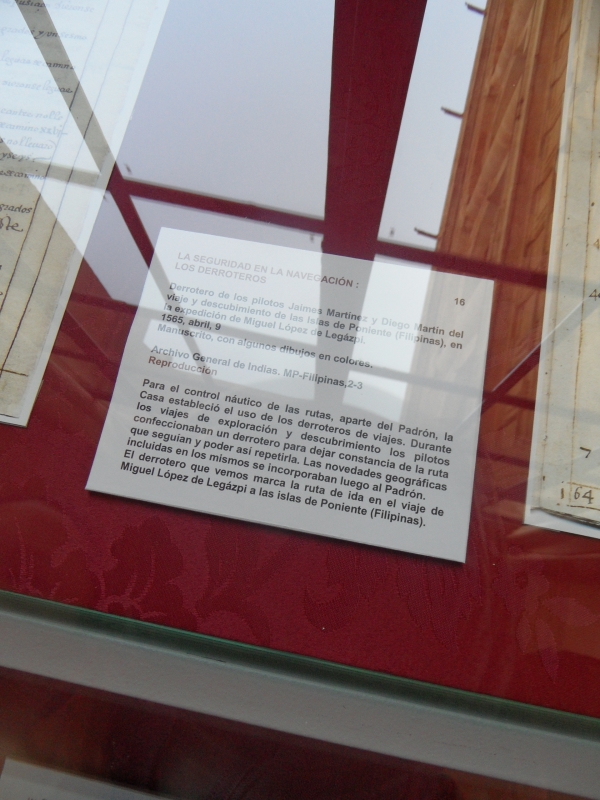 LA SEGURIDAD EN LA NAVEGACIÓN :
LOS DERROTEROS
16
Derrotero de los pilotos Jaimes Martínez y Diego Martín del
viaje y descubimiento de las Islas de Poniente (Filipinas), en
la expedición de Miguel López de Legázpi.
1565, abril, 9
Manuscrito, con algunos dibujos en colores.
Archivo General de Indias. MP-Filipinas,2-3
Reproducción
Para el control náutico de las rutas, aparte del Padrón, la
Casa estableció el uso de los derroteros de viajes. Durante
los viajes de exploración y descubrimiento los pilotos
confeccionaban un derrotero para dejar constancia de la ruta
que seguían y poder así repetirla. Las novedades geográficas
incluidas en los mismos se incorporaban luego al Padrón.
El derrotero que vemos marca la ruta de ida en el viaje de
Miguel López de Legázpi a las islas de Poniente (Filipinas).
7
164